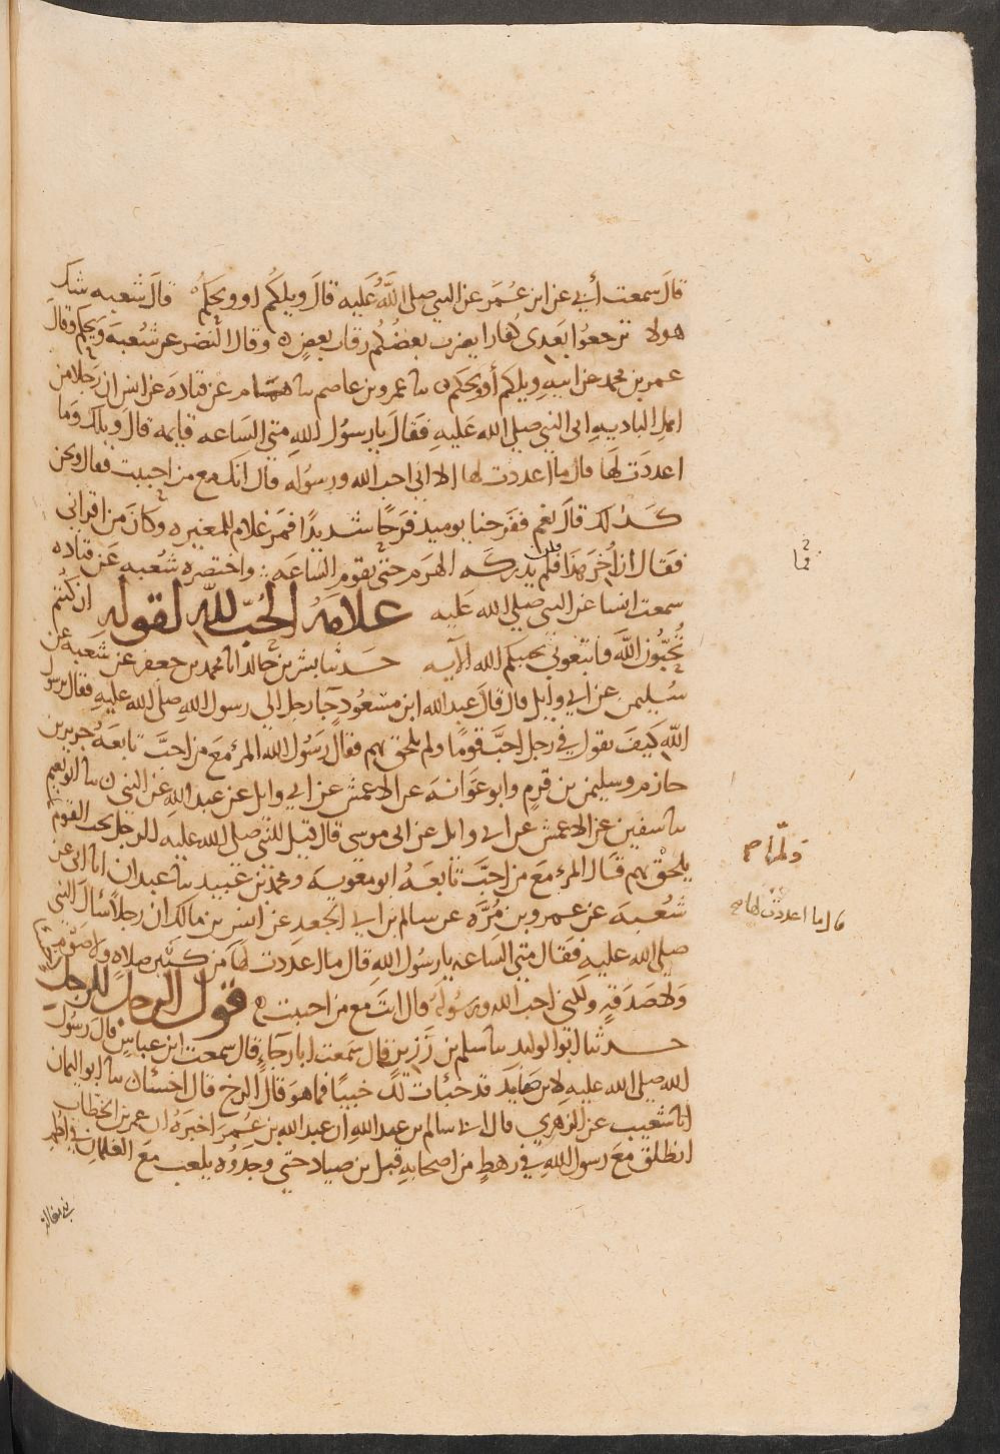 قال سمعت أبي عن ابن عُمَر عن النبي صلى اللَّهُ عَليه قالَ ويلكُم او ويحكُم قالَ شعبه شك
هولا ترجعُوا بَعدى كُفارا يضرب بعضُكُم رقاب بعضٍ ه وقال النضر عن شُعبهَ وَيحكم وقالَ
عمر بن محمد عن ابيهِ ويلكم أو ويحكم ن نا عمرو بن عاصم نا همام عن قتادهَ عن انس ان رَجلا من
اهل الباديهِ اتى النبي صلى الله عَليه فقَالَ يا رسُول اللهِ متى السَاعه قايمه قالَ ويلك وَما
اعددَت لهَا قال ما اعددت لها الا اني احب الله ورسُوله قال انك مع من احببت فقال ونحن
كَذلك قالَ نعم ففرحنا يوميذ فَرَحًا شديدًا فمَر غلام للمغيره وكانَ من اقراني
فقَال ان أُخرَ هَذا فلم يدركَه الهرم حتى يقوم السَاعَه واختصره شعبه عَن قتاده
سمعت انسا عن النبي صلى الله عَليه علامهُ الحُبّ للّه لقولهِ ان كُنتُم
تُحِبُّونَ اللَّهَ فاتبعُوني يحببكم الله الآيه حَدثنا بشر بن خالد انا محمد بن جعفر عن شعبه عن
سُليمن عن ابي وايل قال قالَ عبد الله ابن مسعُودٍ جآ رجل الى رسول اللهِ صلى الله عليهِ فقال يرسول
اللهِ كَيفَ يقول في رجل احبَّ قومًا ولم يلحق بهم فقال رَسُول الله المرءُ مَع من احبَّ تابعَهُ جرير بن
حازم وسليمن بن قرم وابو عَوَانهَ عن الاعمش عن ابي وايل عن عبد اللهِ عن النبي ن نا ابو نعيم
نا سفين عن الاعمش عن ابي وايل عن ابى موسى قال قيل للنبي صلى الله عليه الرجل يحب القوم
يلحَقْ بهم قَال المرءُ مَع من احبَّ تابعَهُ ابو معويهَ ومحمد بن عُبيد نا عبدان انا ابى عن
شُعبهَ عن عمرو بن مُرَّه عن سالم بن ابي الجعدِ عن انس بن مالك ان رجلاً سَال النبي
صلى الله عليهِ فقَال متى السَاعه يا رسُول اللهِ قال ما اعددت لهَا من كَثير صلاهٍ ولا صَوْمٍ
وَلا صَدقهٍ ولكني احب الله ورسُولهَ قال انتَ مع من احببت ه قول الرجل للرجل
حدثنا ابو الوليد نا سلم بن زَرِيرٍ قال سَمعت ابا رجَاءٍ قال سمعت ابن عباسٍ قالَ رسُول
الله صلى الله عليهِ لابن صَايد قد خبئات لك خبيًا فما هوَ قال الدخ قال اخسئا ن نا ابو اليمان
انا شعيب عن الزهري قال اخبرني سالم بن عبد اللهِ ان عبد الله بن عُمَر اخبَرَهُ ان عمر بن الخطاب
انطلق مَعَ رسول اللهِ في رهطٍ من اصحابهِ قبل بن صياد حتى وجدوه يلعب مَع الغلمانِ في اُطُم
بني مغاله
فما
ولمّا صح
قال ما اعددت لها صح